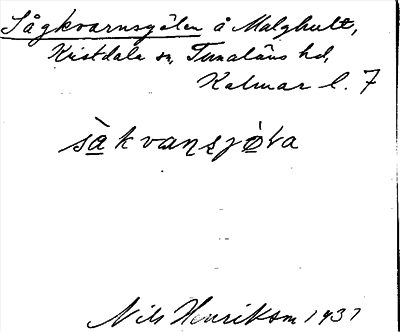 Sågkvarnsgölen å Malghult,
Kristdala sn, Tunaläns hd,
Kalmar l. 7
sàkvansjö́ta
Nils Henriksson 1937